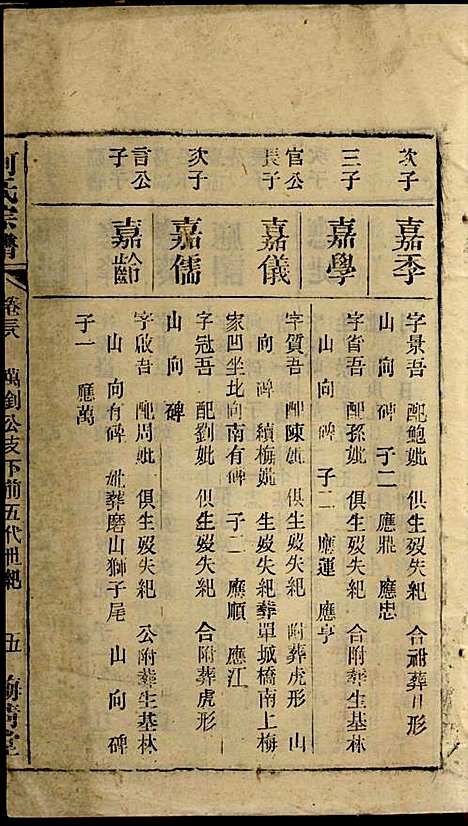 次子
嘉季
字景吾 配鮑妣 俱生歿失紀 合祔葬月形
山 向 碑 子二 應鼎 應忠
三子
嘉學
字省吾 配孫妣 俱生歿失紀 合附葬生基林
山 向 碑 子二 應運 應亨
官公
長子
嘉儀
字質吾 配陳妣 俱生歿失紀 附葬虎形 山
向 碑 續梅妣 生歿失紀葬單城橋南上梅
家凹坐北向南有碑 子二 應順 應江
次子
嘉儒
字冠吾 配劉妣 俱生歿失紀 合附葬虎形
山 向 碑
言公
子
嘉齡
字啟吾 配周妣 俱生歿失紀 公附葬生基林
山 向有碑 妣葬磨山獅子尾 山 向 碑
子一 應萬
何氏宗譜
劉公支下前五代世紀
五